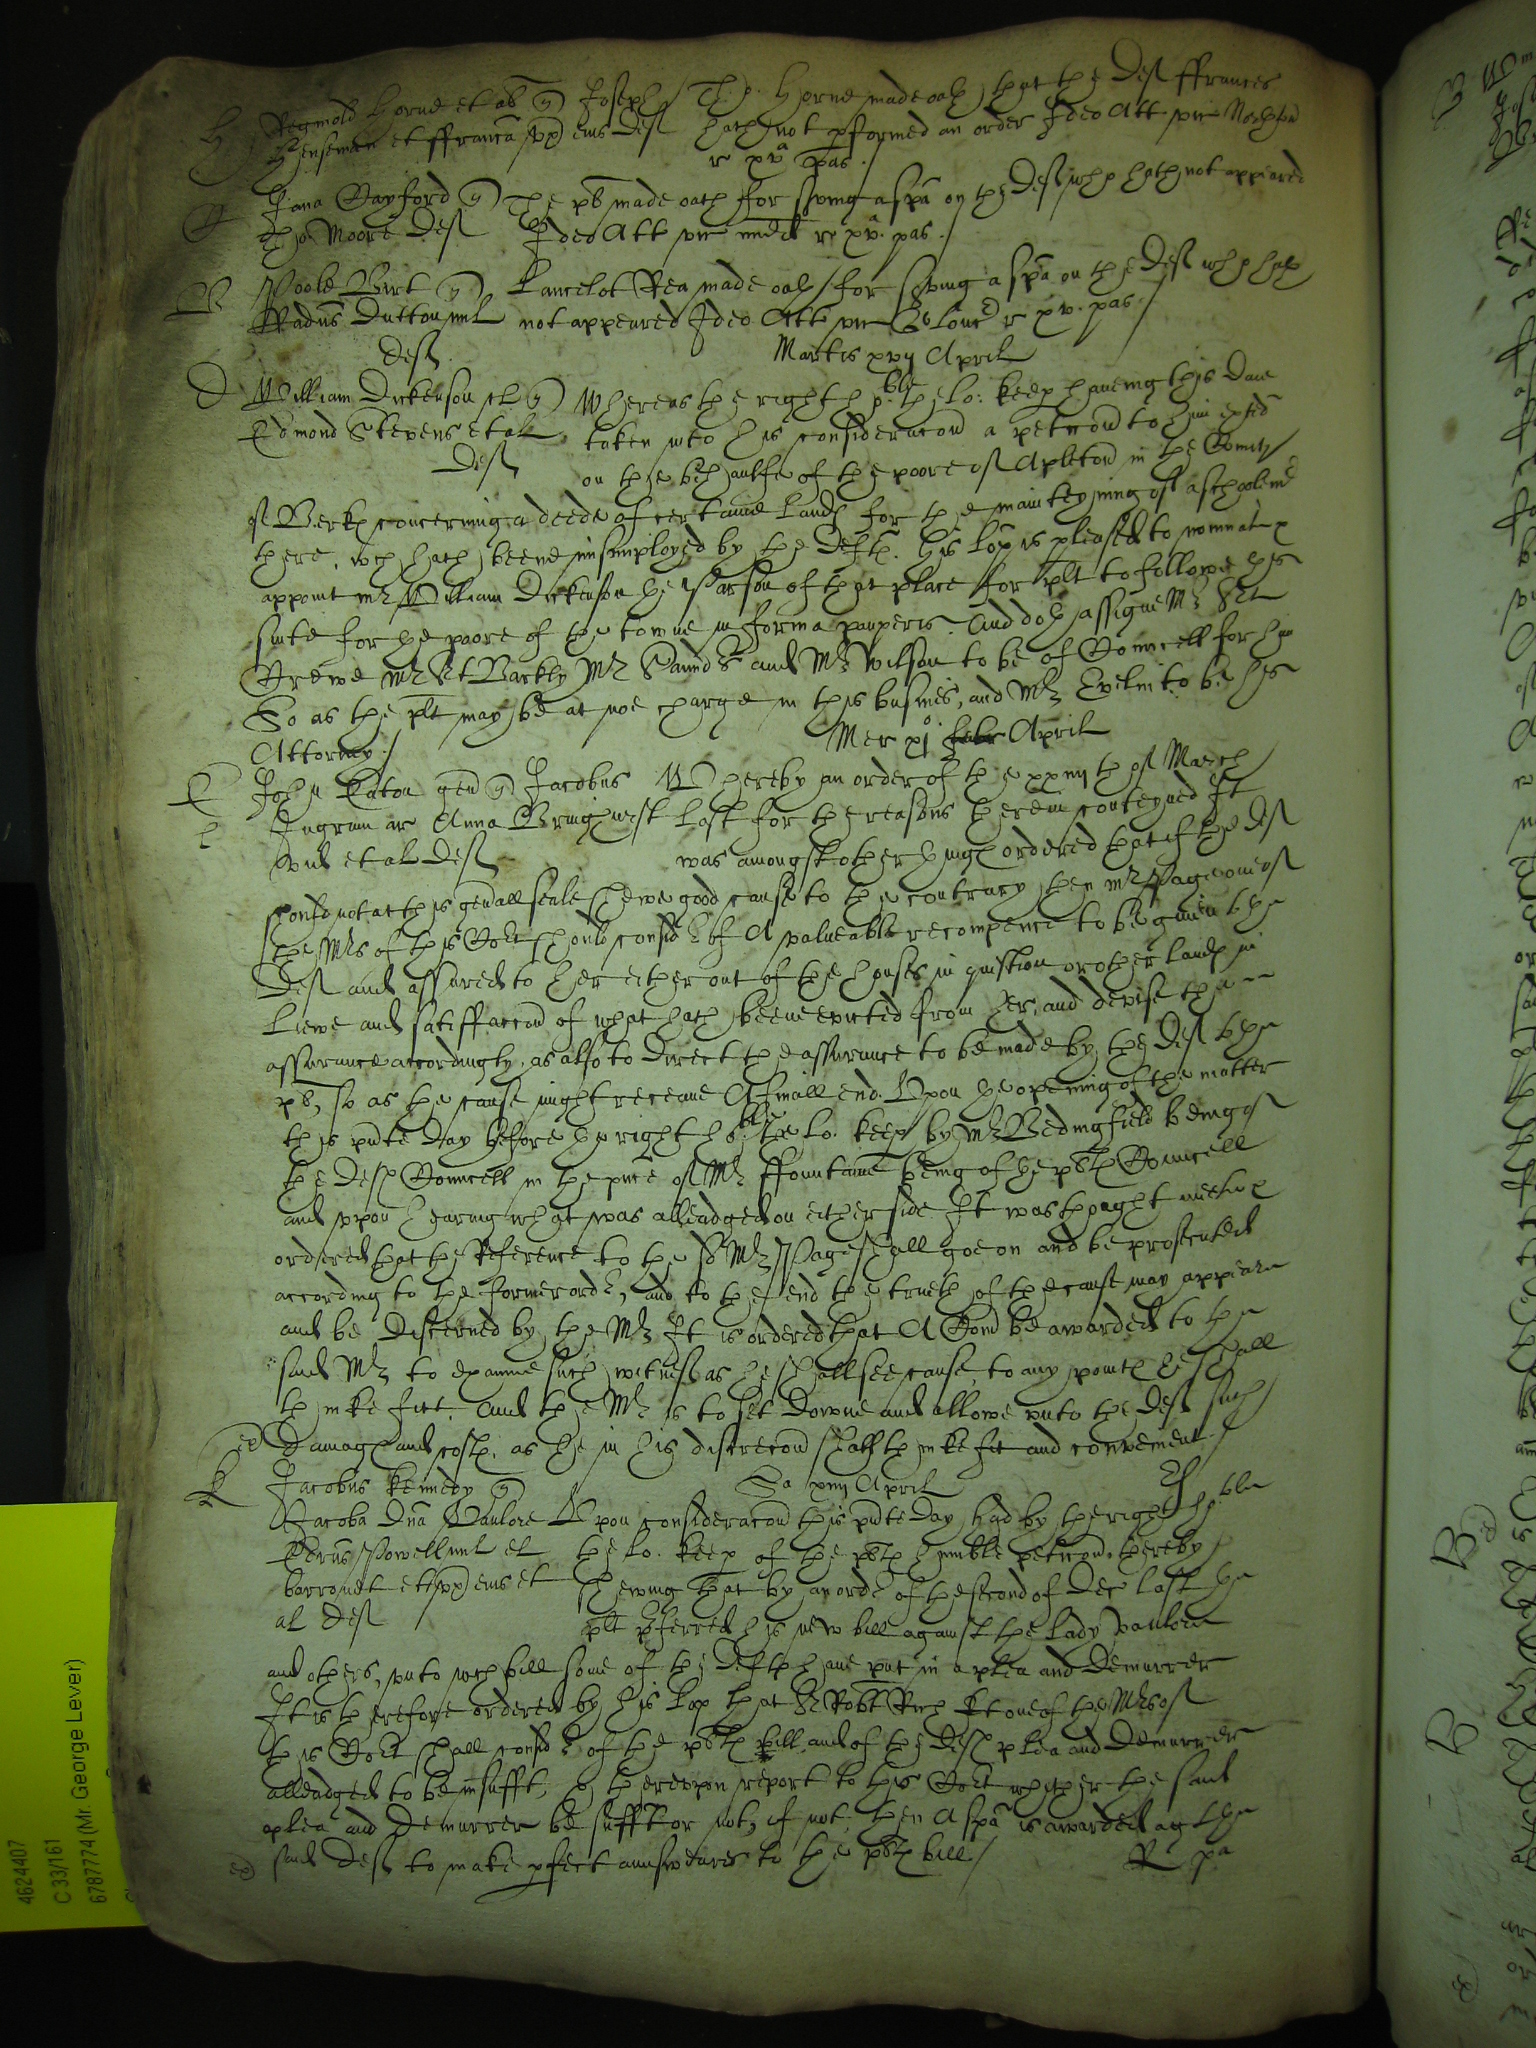 H Reginold Horne et al qu Joseph Tho. Horne made oath that the Def ffrances
Henseman et ffrancā ux eius Def hath not pformed an order Ideo Att vic Northton
r xva pas.
G Jana Gayford qu The pl made oath for sving a spa on the Def who hath not appeared
Tho. Moore Def Ideo Att vic r xva. pas.
B Poole Birt qu Lancelot Rea made oath for sving a spa on the Def who hath
Radūs Dutton mil not appeared Ideo Att vic Glouc r xv. pas.
Def Martis xvij April
D William Dickenson cl qu Whereas the right ho:ble the lo: keep haueing this daie
Edmond Stevens et al taken into his consideracon a peticon to him exhited
Def on the behaulfe of the poore of Apleton in the County
of Berk concerning a deede of certaine lands for the mainteyning of a schoolemr
there, wch hath beene misimployed by the defts. his lop is pleased to nominate &
appoint mr William Dickenson the Parson of that place for plt to followe the
suite for the poore of the towne in forma pauperis. And doth assigne Mr Sit
Crewe mr Sit Barkly Mr Saunds and Mr Wilson to be of Councell for him
So as the plt may be at noe charge in this busines, and Mr Evelin to be his
Attorney Mer xjo April
E John Eaton gen qu Jacobus Whereby an order of the xxiiijth of March
Ingram ar Anna Bringhurst last for the reasons therein conteyned It
vid et al Def was amongst other things ordered that if the def
should not at this genall seale shewe good cause to the contrary then mr Page one of
the Mrs of this Cort should consider of A valueable recompence to be given the
Def and assured to her either out of the houses in question or other lands in
Liewe and satisffaccon of what hath beene evicted from her, and devise the
assurance accordingly, as also to direct the assurance to be made by the Def to the
pl, so as the cause might receaue A finall end. Upon the opening of the matter
this pnte day before the right ho:ble the lo. keep by Mr Bedingfield being of
the Defts Councell in the pnce of Mr ffountaine being of the plts Councell
and uppon hearing what was alleadged on either side It was thought meete &
ordered that the Reference to the sd Mr Page shall goe on and be prosecuted
according to the former order, and to the end the trueth of the cause may appeare
and be discerned by the Mr It is ordered that A Com be awarded to the
said Mr to examine such witness as he shall see cause, to any points he shall
thinke fitt. And the Mr is to set downe and allowe unto the Def such
Damages and costs, as he in his discrecon shall thinke fit and convenient.
K Jacobus Kennedy qu Sa xiiij April
Jacoba Dna Vanlore Upon consideracon this pnte day had by the right ho:ble
Edrus Powell mil et the lo. keep of the plts humble peticon, thereby
barronet et ux eius et shewing that by an order of the second of Dec last the
al def plt pferred his new bill against the lady Vanlore
and others, unto wch bill some of the defts haue put in a plea and demurrer
It is therefore ordered by his lop that Sr Robt Rich kt one of the Mrs of
this Cort shall consider of the plts bill and of the Defts plea and demurrer
alleadged to be insufft, & thereupon report to this Cort whether the said
plea and demurrer be sufft or not, if not, then A spa is awarded ag the
said Deft to make pfect aunsweares to the plts bill R pa
4624407
C 33/161
6787774 (Mr. George Lever)